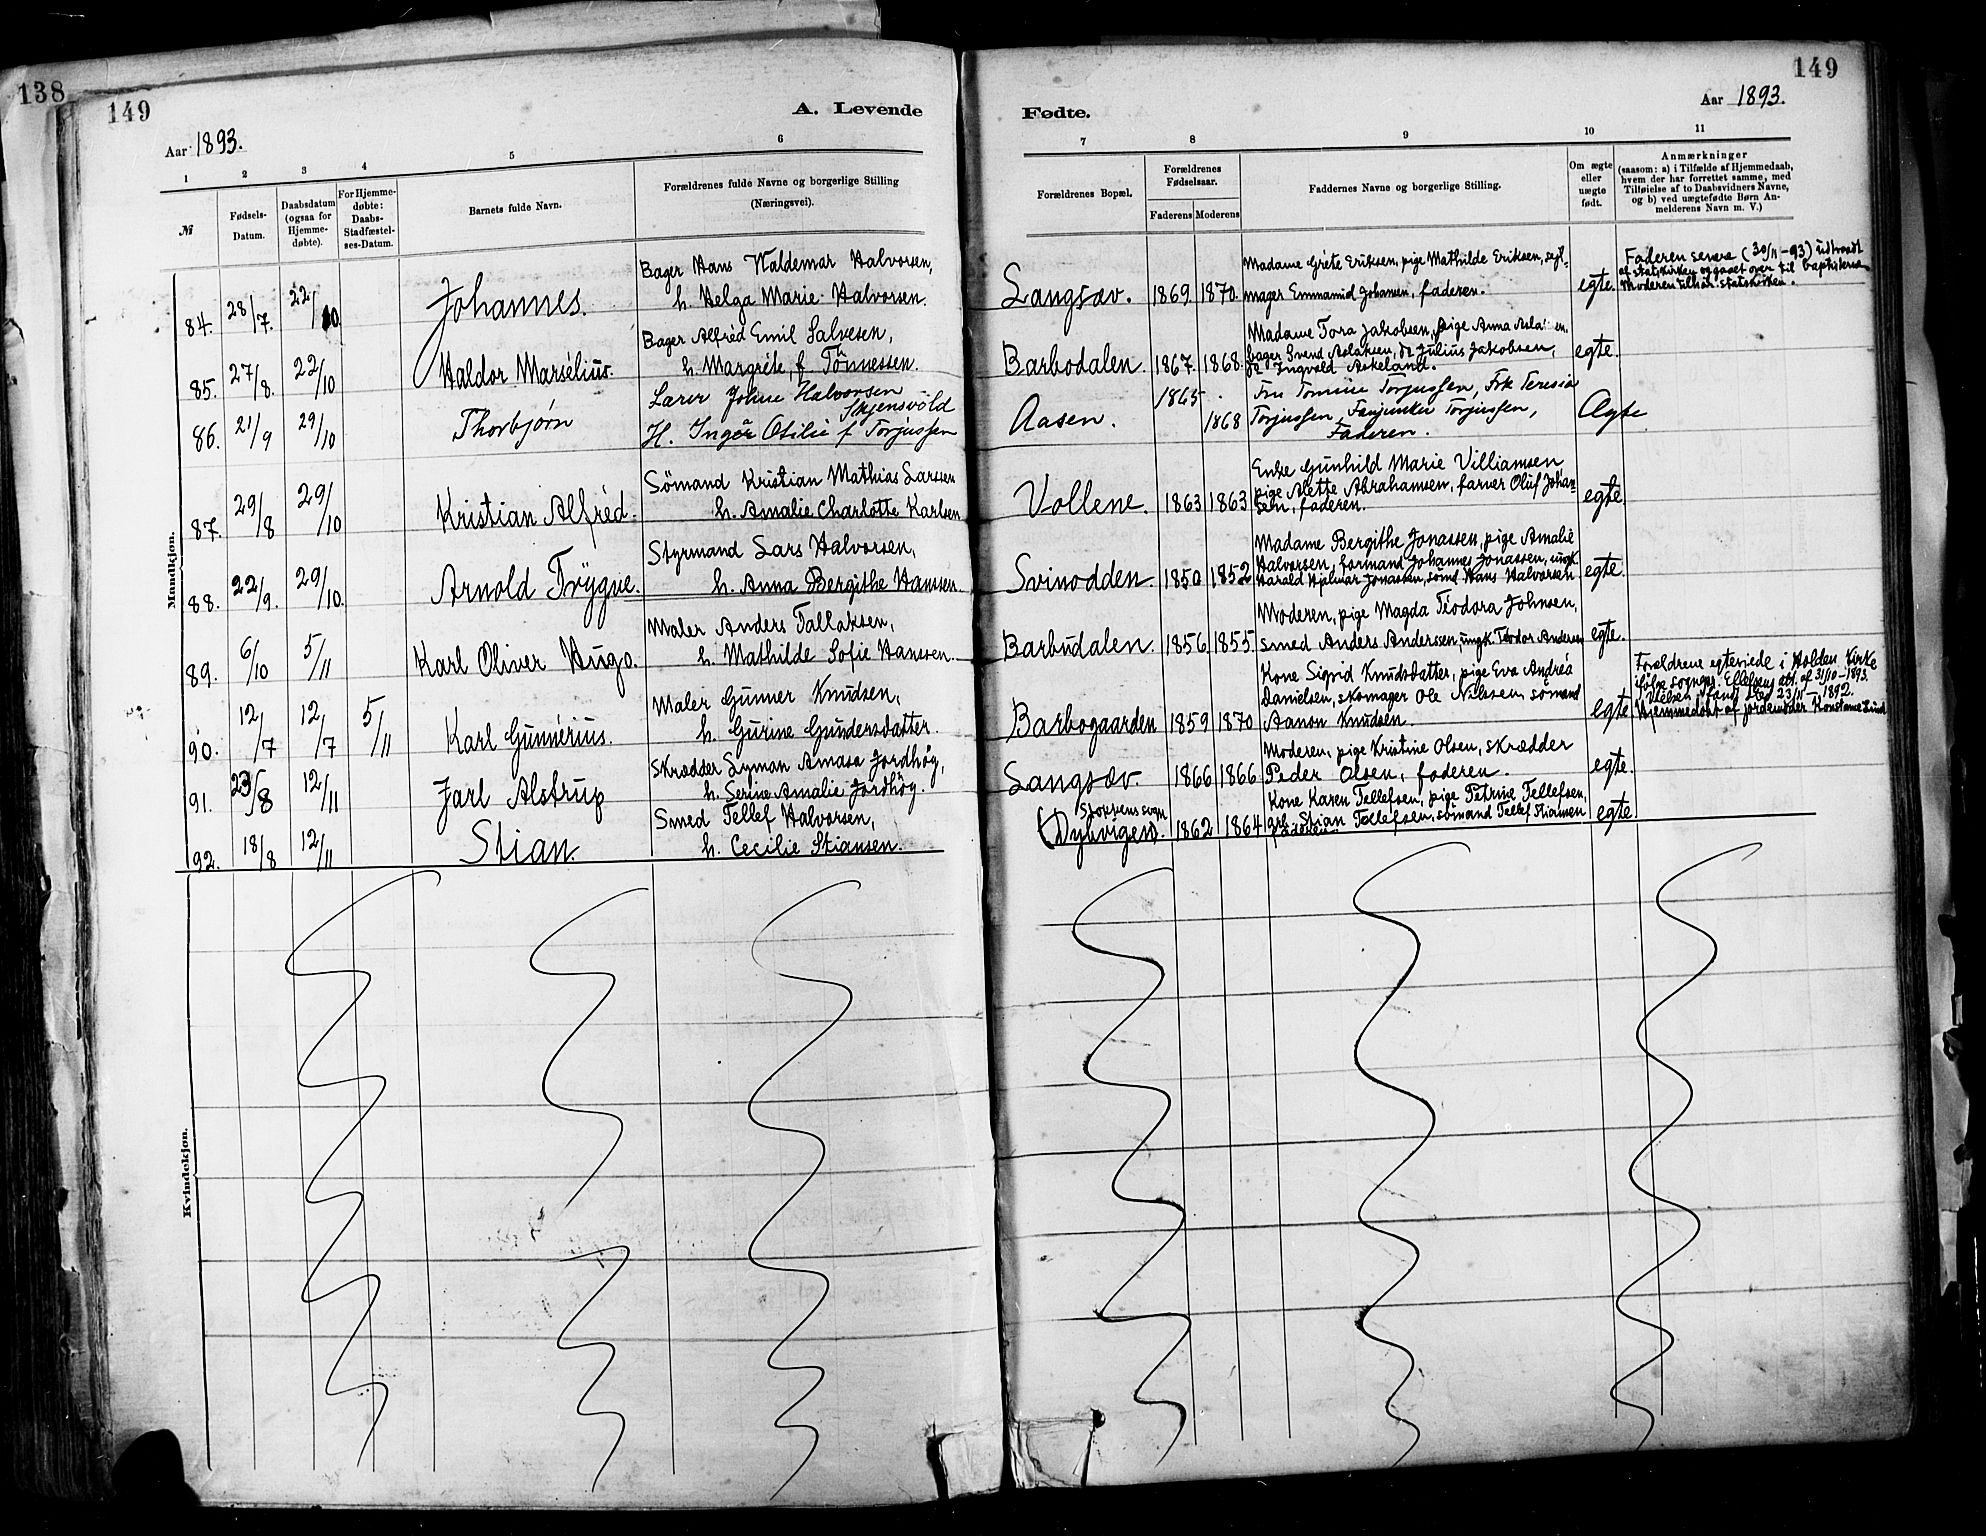 138
149
A. Levende
Aar 1893.
1
2
3
4
5
6
№
Fødsels-
Datum.
Daabsdatum
(ogsaa for
Hjemme-
døbte).
For Hjemme-
døbte:
Daabs-
Stadfæstel-
ses-Datum.
Barnets fulde Navn.
Forældrenes fulde Navne og borgerlige Stilling
(Næringsvei).
Mandkjøn.
84. 28/7. 22/10 Johannes. Bager Hans Valdemar Halvorsen,
h. Helga Marie Halvorsen.
85. 27/8. 22/10 Haldor Marsélius. Bager Alfred Emil Salvesen,
h. Margréte, f. Tönnessen.
86. 21/9 29/10 Thorbjørn Lærer Johne Halvorsen
Skjensvöld
H. Inger Otilie f Torjussen
87. 29/8 29/10 Kristian Alfréd. Sömand Kristian Mathias Larssen
h. Amalie Charlotte Karlsen
88. 22/9. 29/10. Arnold Trygve. Styrmand Lars Halvorsen,
h. Anna Bergithe Hanssen.
89. 6/10 5/11 Karl Oliver Hugo. Maler Anders Tallaksen,
h. Mathilde Sofie Hanssen.
90. 12/7 12/7 5/11 Karl Gunnérius. Maler Gunner Knudsen,
h. Gurine Gundersdatter.
91. 23/8 12/11 Jarl Alstrup Skrædder Lyman Amasa Jordhög,
h. Serine Amalie Jordhög.
92. 18/8 12/11 Stian. Smed Tellef Halvorsen,
h. Cecilie Stiansen.
Kvindekjøn.
149
Fødte.
Aar 1893.
7
8
9
10
11
Forældrenes Bopæl.
Forældrenes
Fødselsaar.
Faderens Moderens
Faddernes Navne og borgerlige Stilling.
Om ægte
eller
uægte
født.
Anmærkninger
(saasom: a) i Tilfælde af Hjemmedaab,
hvem der har forrettet samme, med
Tilføielse af to Daabsvidners Navne,
og b) ved uægtefødte Børn An-
melderens Navn m. V.)
Langsæv. 1869 1870. Madame Gréte Eriksen, pige Mathilde Eriksen, segl-
mager Emmamid Johansen, faderen. egte. Faderen senere (30/11-93) udtraadt
af statskirken og gaaet over til baptisterne
Moderen tilhør. statskirken.
Barbodalen. 1867 1868. Madame Tora Jakobsen, pige Anna
bager Svend Aslaksen, do Julius Jakobsen,
do Ingvald Askeland. egte.
Aasen. 1865 1868 Fru Tomine Torjussen, Frk Teresia
Torjussen, Fanjunker Torjussen,
Faderen. Ægte
Vollene. 1863 1863 Enke Gunhild Marie Villiamsen
pige Alette Abrahamsen, farver Oluf Johan-
sen, faderen. egte.
Svinodden. 1850 1852 Madame Bergithe Jonassen, pige Amalie
Halvorsen, formand Johannes Jonassen, ungk.
Harald Hjelmar Jonassen, sömd Hans Halvorsen egte.
Barbudalen. 1856 1855. Moderen, pige Magda Téodora Johnsen,
smed Anders Anderssen, ungk. Téodor Andersen egte.
Barbogaarden 1859 1870 Kone Sigrid Knudsdatter, pige Eva Andréa
Danielsen, skomager Ole Nilssen, sömand
Aanon Knudsen. egte. Forældrene egteviede i Holden Kirke
ifölge sognepr. Ellefsens att. af 31/10-1893.
Vielsen fandt sted 23/11-1892.
Hjemmedöbt af jordemoder Konstanse Lund
Langsæv. 1866 1866 Moderen, pige Kristine Olsen, skrædder
Peder Olsen, faderen. egte.
Stokkens sogn
(Dybvigen). 1862 1864 Kone Karen Tellefsen, pige Petrine Tellefsen,
grb. Stian Tellefsen, sömand Tellef Stiansen
faderen. egte